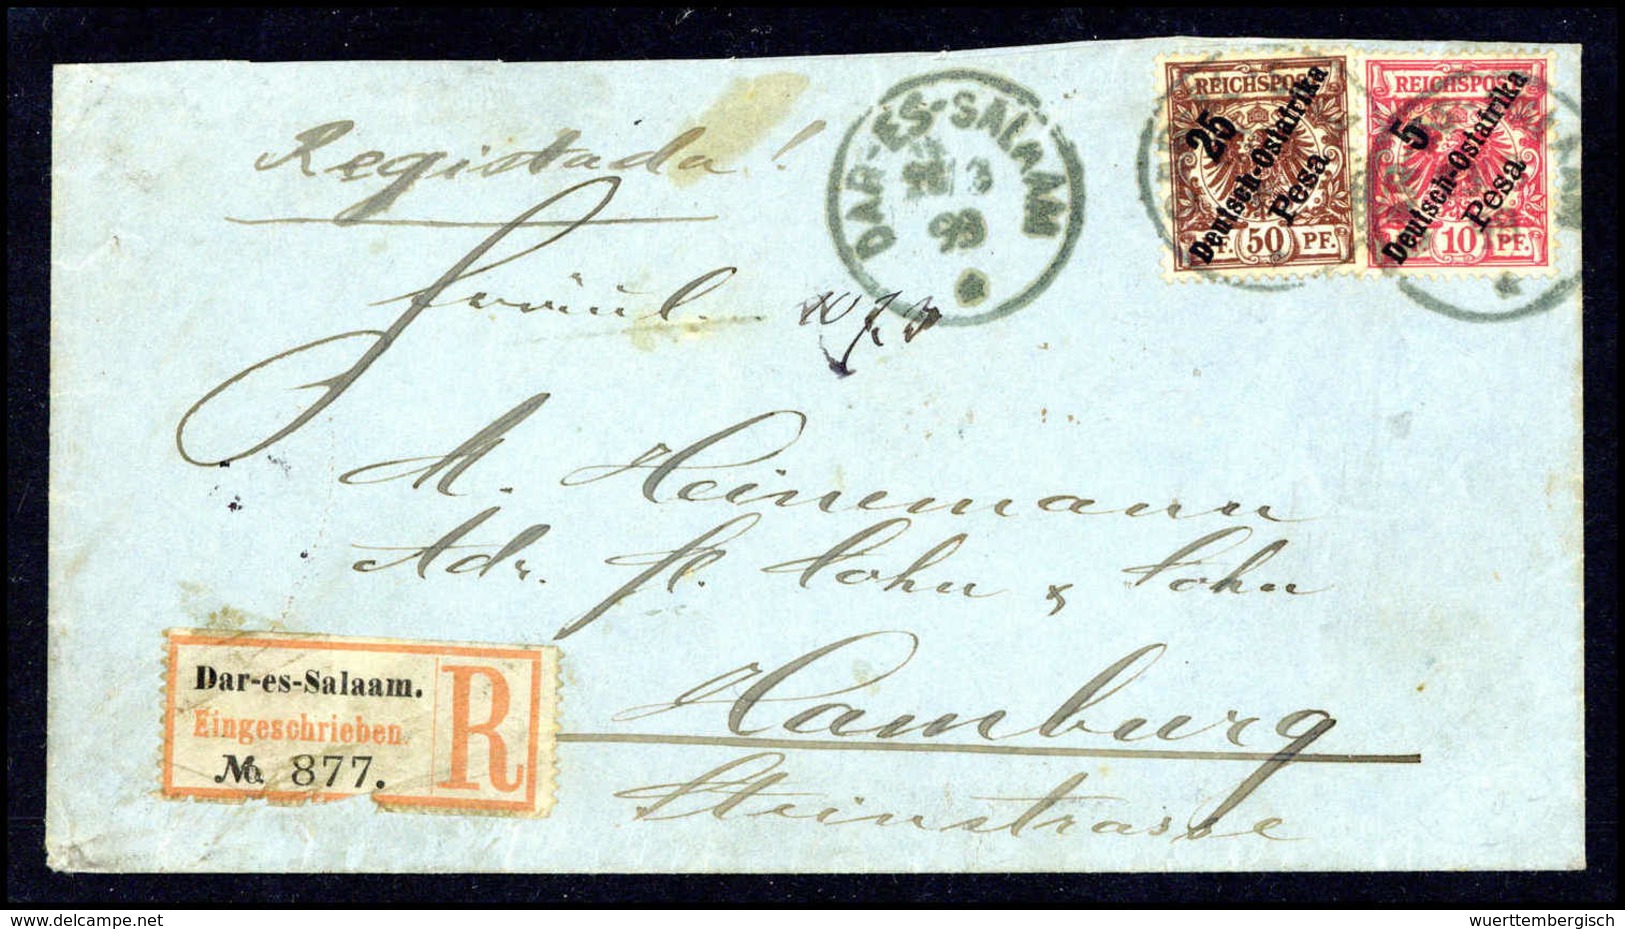 REICHSPOST
25
Deutsch-Ostafrika
Pesa
50 PF.
REICHSPOST
5
Deutsch-Ostafrika
Pesa
10 PF.
DAR-ES-SALAAM
3
98
Registada!
Fräul.
M. Heinemann
Adr. H. Cohn & Sohn
Hamburg
Steinstrasse
Dar-es-Salaam.
Eingeschrieben.
No. 877.
R
delcampe.net
wuerttembergisch